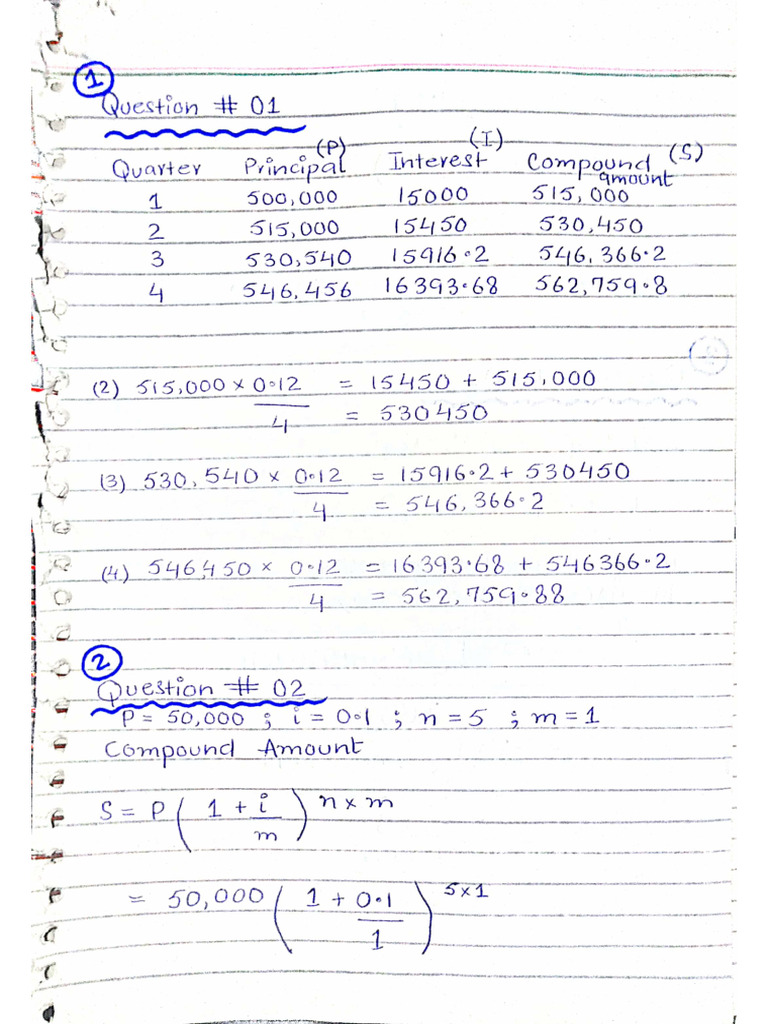 1
Question # 01
Quarter Principal (P) Interest (I) Compound amount (S)
1 500,000 15000 515,000
2 515,000 15450 530,450
3 530,540 15916.2 546,366.2
4 546,456 16393.68 562,759.8
(2) 515,000 × 0.12/4 = 15450 + 515,000
= 530450
(3) 530,540 × 0.12/4 = 15916.2 + 530450
= 546,366.2
(4) 546,450 × 0.12/4 = 16393.68 + 546366.2
= 562,759.88
2
Question # 02
P = 50,000 ; i = 0.1 ; n = 5 ; m = 1
Compound Amount
S = P (1 + i/m) n × m
= 50,000 (1 + 0.1/1) 5×1